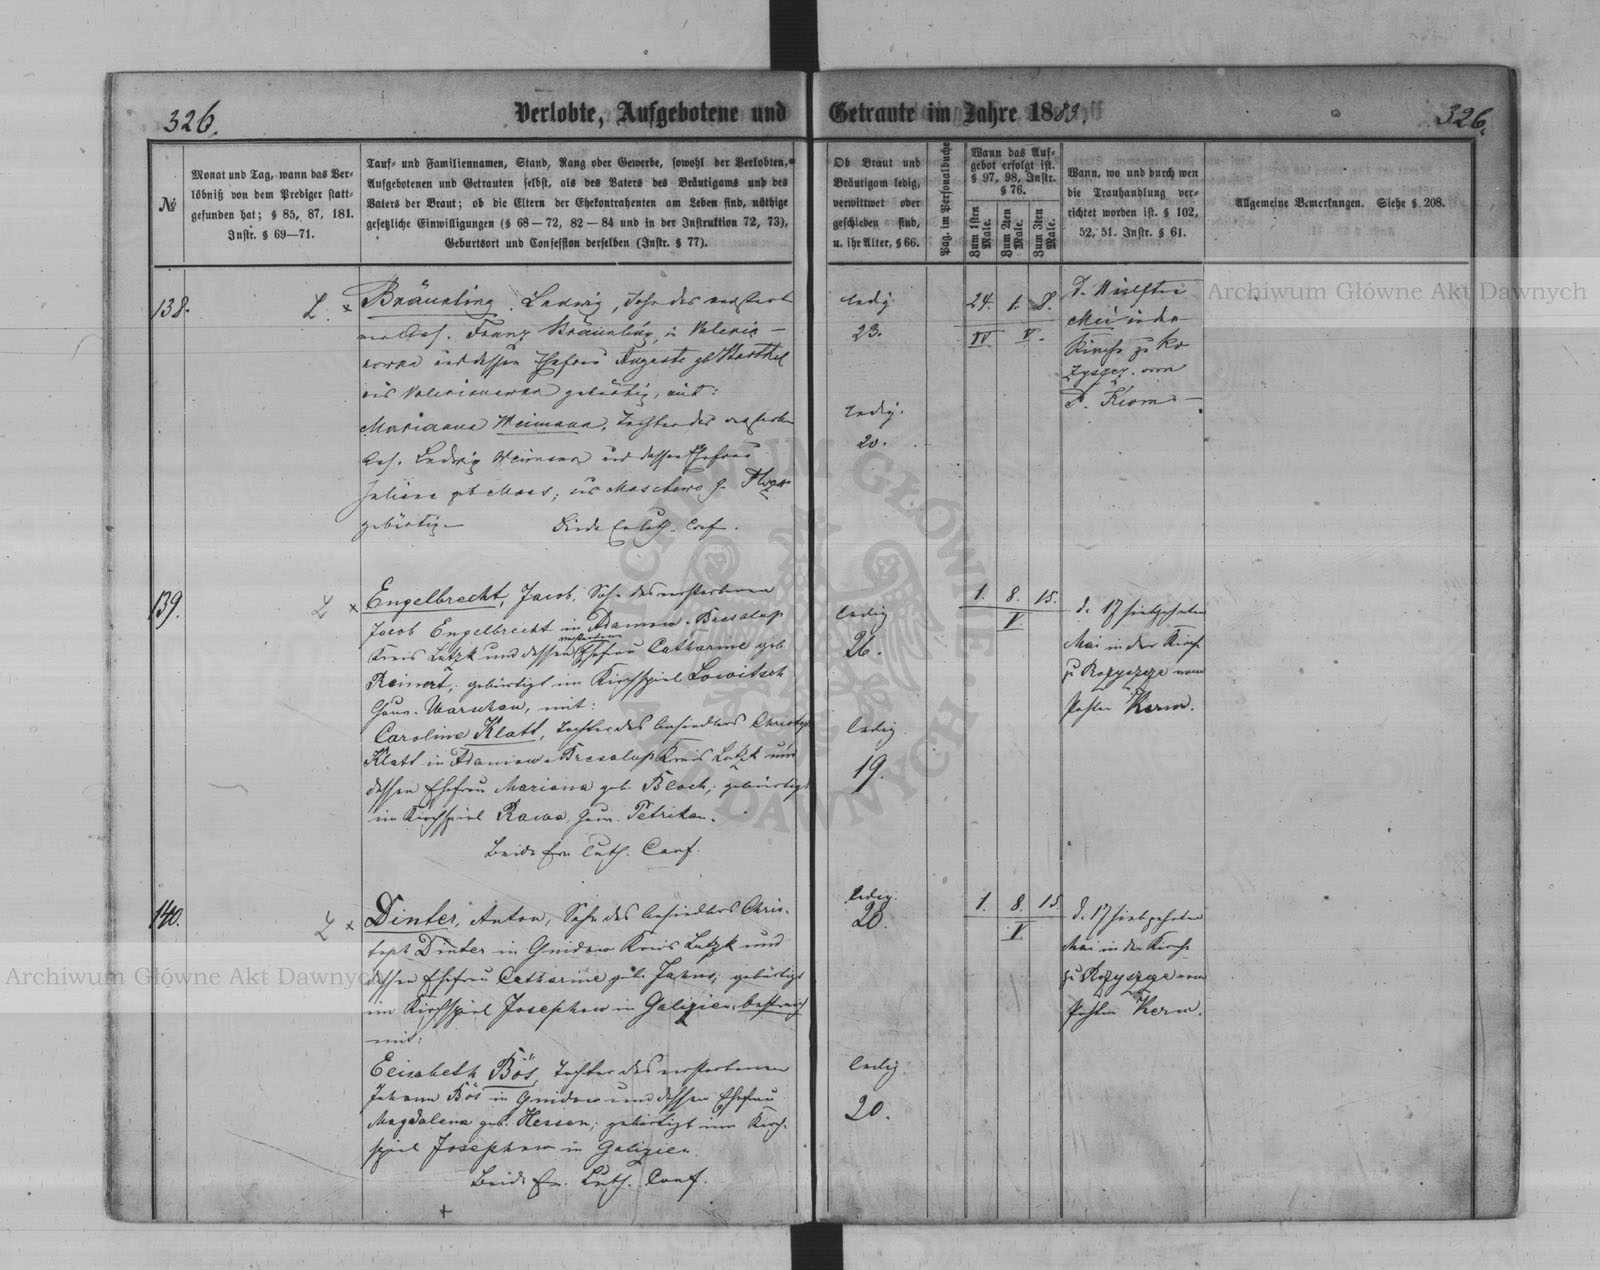 326.
Verlobte, Aufgebotene und
Getraute im Jahre 1883.
326.
№
Monat und Tag, wann das Ver-
löbniß von dem Prediger statt-
gefunden hat; § 85, 87, 181.
Instr. § 69—71.
Tauf- und Familiennamen, Stand, Rang oder Gewerbe, sowohl der Verlobten,
Aufgebotenen und Getrauten selbst, als des Vaters des Bräutigams und des
Vaters der Braut; ob die Eltern der Ehekontrahenten am Leben sind, nöthige
gesetzliche Einwilligungen (§ 68—72, 82—84 und in der Instruktion 72, 73),
Geburtsort und Confession derselben (Instr. § 77).
Ob Braut und
Bräutigam ledig,
verwittwet oder
geschieden sind,
u. ihr Alter, § 66.
Pag. im Personalbuche
Wann das Auf-
gebot erfolgt ist.
§ 97, 98, Instr.
§ 76.
Zum 1sten
Male.
Zum 2ten
Male.
Zum 3ten
Male.
Wann, wo und durch wen
die Trauhandlung ver-
richtet worden ist. § 102,
52, 51. Instr. § 61.
Allgemeine Bemerkungen. Siehe § 208.
138.
L. x
Bräunling, Ludwig, Sohn des verstorb
Franz Bräunling, in Valeria-
und dessen Ehefrau Auguste gb Barthel
aus gebürtig, mit:
Mariana Weimann, Tochter des verstorb
Ludwig Weimann und dessen Ehefrau
Juliane geb Maas; aus
gebürtig— Beide Ev luth. Conf.
ledig
23.
ledig.
20.
24. 1. 8.
IV V.
d.
Mai in der
Kirche zu Ro
zyszcz. vom
P. Kerm
139.
L x
Engelbrecht, Jacob, Sohn des verstorbenen
Jacob Engelbrecht in Adamow-Bresalup
Kreis Lutzk und dessen verstorbenen Ehefrau Catharine geb
Reinert; gebürtigt im Kirchspiel Lowitsch
Gouv. Warschau, mit:
Caroline Klatt, Tochter des Ansiedlers Christoph
Klatt in Adamow-Bresalup Kreis Lutzk und
dessen Ehefrau Mariana geb. Bloch; gebürtigt
im Kirchspiel Rawa, Gouv. Petrikau.
Beide Ev. Luth. Conf.
ledig
26.
ledig
19.
1. 8. 15.
V.
d. 17 siebzehnten
Mai in der Kirche
zu Rozyszcze vom
Pastor Kerm.
140.
L x
Dinter, Anton, Sohn des Ansiedlers Chris-
toph Dinter in Gnidow Kreis Lutzk und
dessen Ehefrau Catharine geb. Jahns; gebürtigt
im Kirchspiel Josephow in Galizien,
mit:
Elisabeth Bös, Tochter des verstorbenen
Johann Bös in Gnidow und dessen Ehefrau
Magdalena geb. Hessen; gebürtigt im Kirch-
spiel Josephow in Galizien.
Beide Ev. Luth. Conf.
ledig.
20.
ledig
20.
1. 8. 15
V
d. 17 siebzehnten
Mai in der Kirche
zu Rozyszcze vom
Pastor Kerm.
Archiwum Główne Akt Dawnych
Archiwum Główne Akt Dawnych
ARCHIWUM GŁÓWNE AKT DAWNYCH